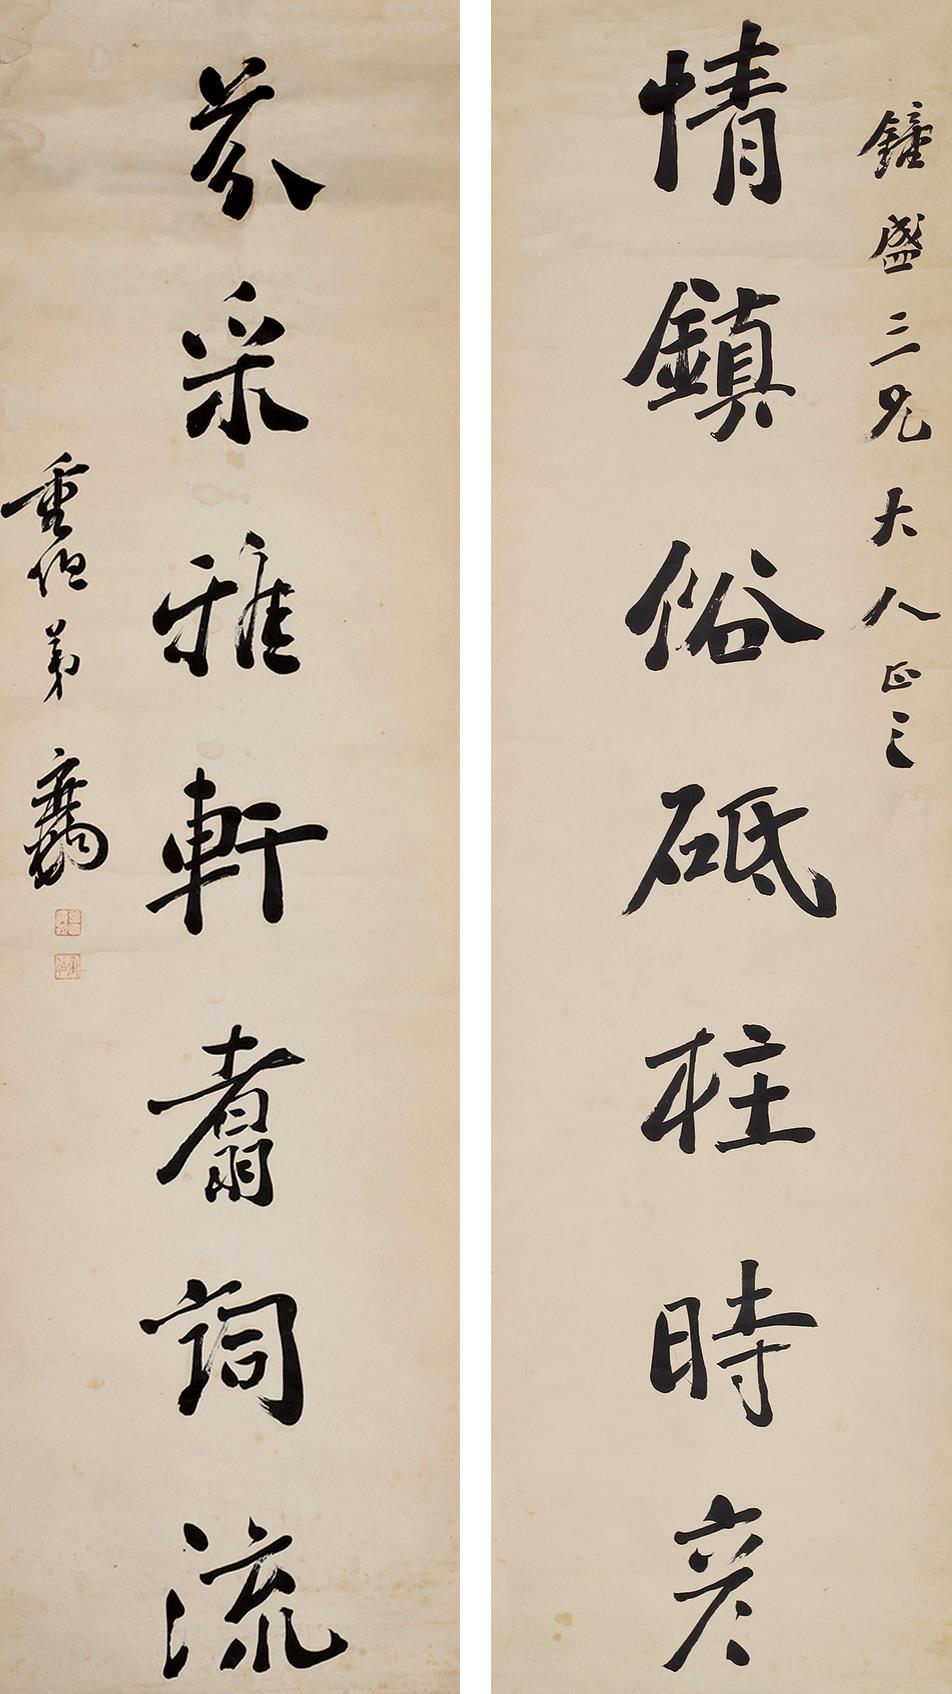 鐘盛三兄大人正之
情鎮俗砥柱時彥
芬采雅軒翥詞流
重伯弟廣鈞